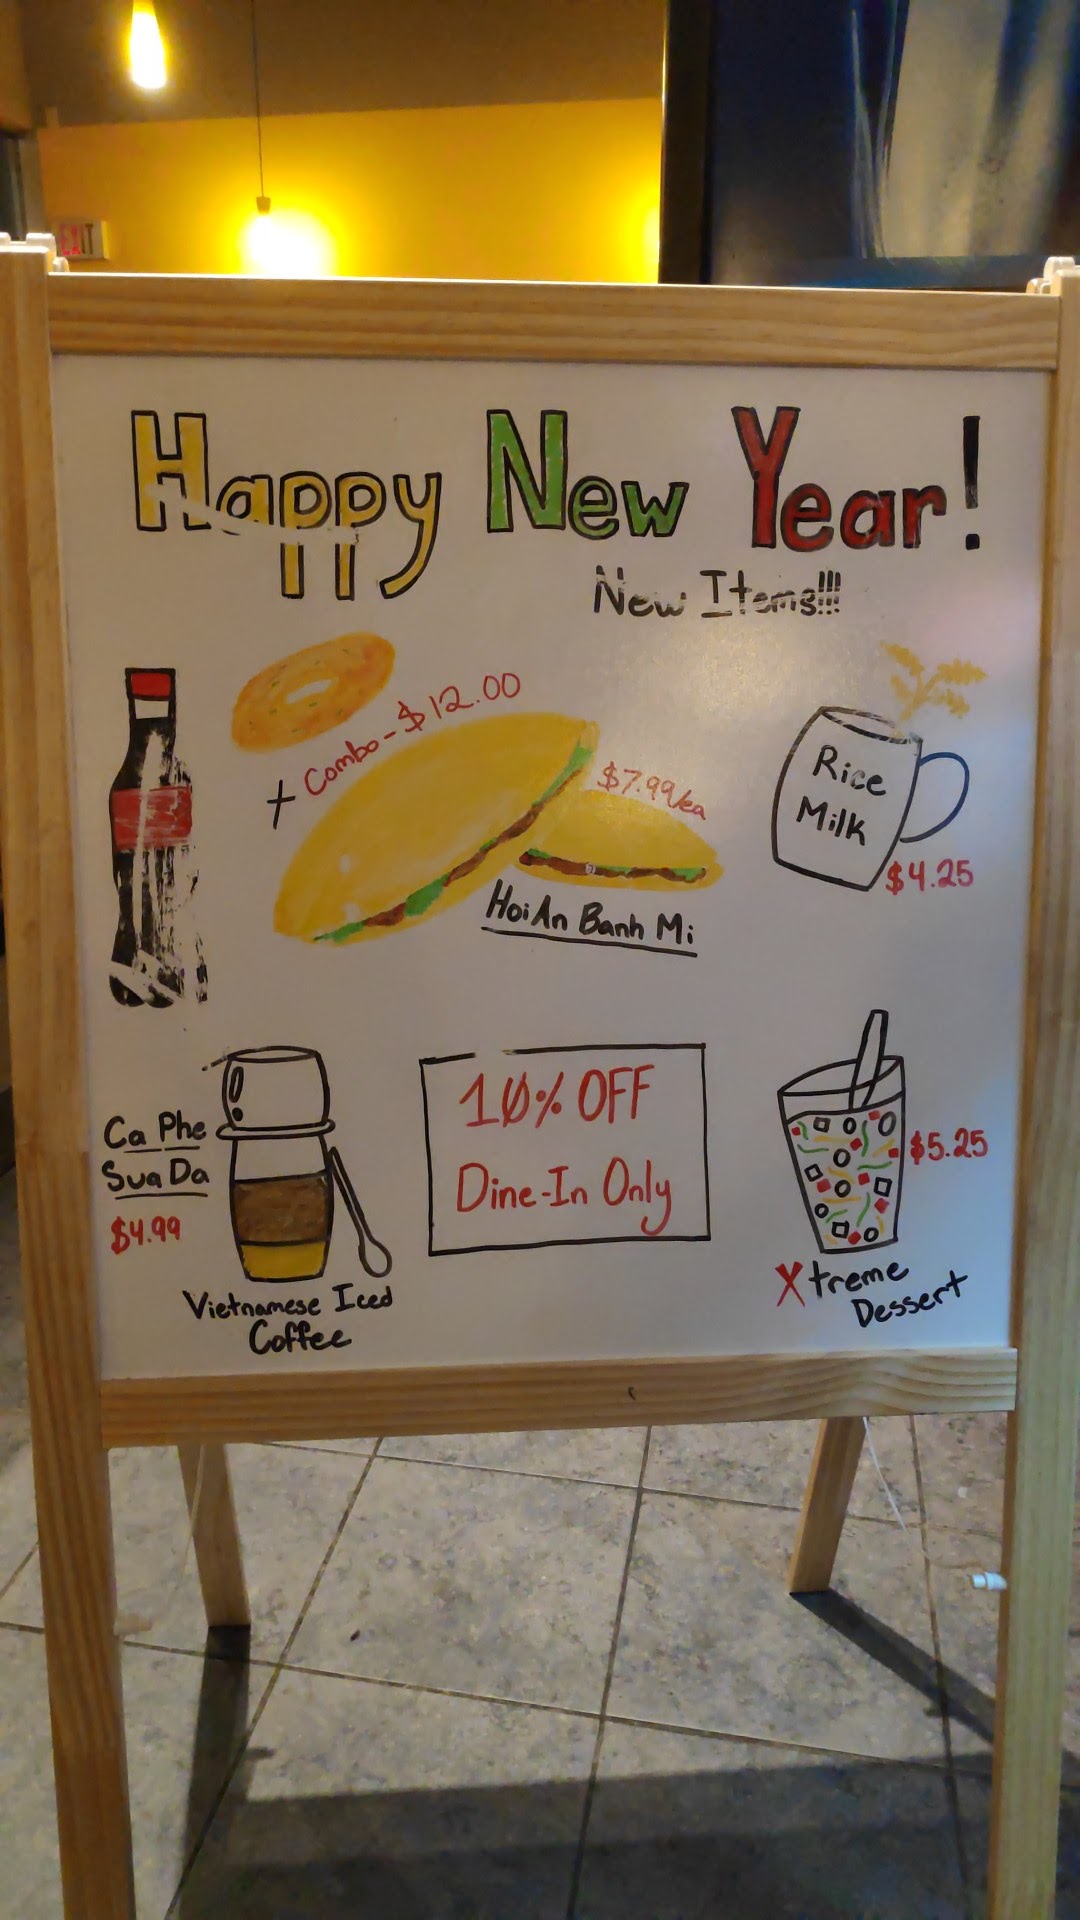 EXIT
Happy New Year!
New Items!!!
+ Combo - $12.00
$7.99/ea
Hoi An Banh Mi
Rice
Milk
$4.25
Ca Phe
Sua Da
$4.99
Vietnamese Iced
Coffee
10% OFF
Dine-In Only
$5.25
Xtreme
Dessert